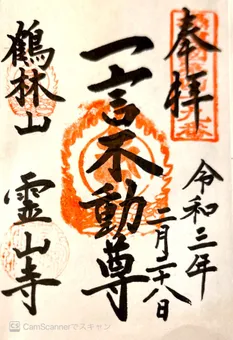 奉拝
令和三年
二月二十八日
一言不動尊
鶴林山
霊山寺
CamScannerでスキャン